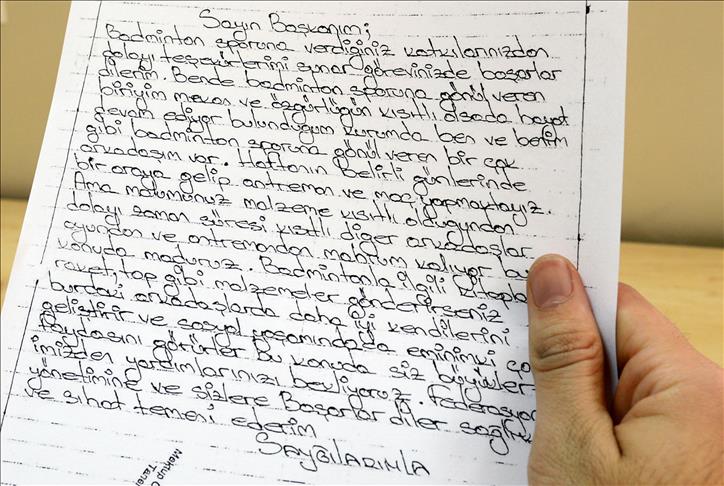 Sayın Başkanım;
Badminton sporuna verdiğiniz katkılarınızdan
dolayı teşekürlerimi sunar görevinizde başarılar
dilerim. Bende badminton sporuna gönül veren
biriyim mekan ve özgürlüğün kısıtlı olsada hayat
devam ediyor bulunduğum kurumda ben ve benim
gibi badminton sporuna gönül veren bir çok
arkadaşım var. Haftanın Belirli günlerinde
bir araya gelip antreman ve maç yapmaktayız.
Ama malumunuz malzeme kısıtlı olduğundan
dolayı zaman süresi kısıtlı diğer arkadaşlar
oyundan ve antremandan mahrum kalıyor bu
konuda maduruz. Badmintonla ilgili kitapla
raket, top gibi malzemeler gönderirseniz
burdaki arkadaşlarda daha iyi kendilerini
geliştirir ve sosyal yaşamındada eminimki ço
faydasını görürler Bu konuda siz büyükler
imizden yardımlarınızı bekliyoruz. Federasyo
yönetimine ve sizlere Başarılar diler sağlık
ve sihat temesi ederim
SAYGILARIMLA